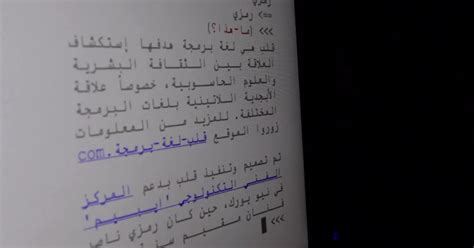 رمزي
==> رمزي
>>> (ما-هذا؟)
قلب هي لغة برمجة هدفها إستكشاف
العلاقة بين الثقافة البشرية
والعلوم الحاسوبية، خصوصاً علاقة
الأبجدية اللاتينية بلغات البرمجة
المختلفة. للمزيد من المعلومات
زوروا الموقع قلب-لغة-برمجة.com
تم تصميم وتنفيذ قلب بدعم المركز
الفني التكنولوجي 'ايبيم'
في نيو يورك، حين كان رمزي ناصر
فنان مقيم
>>>